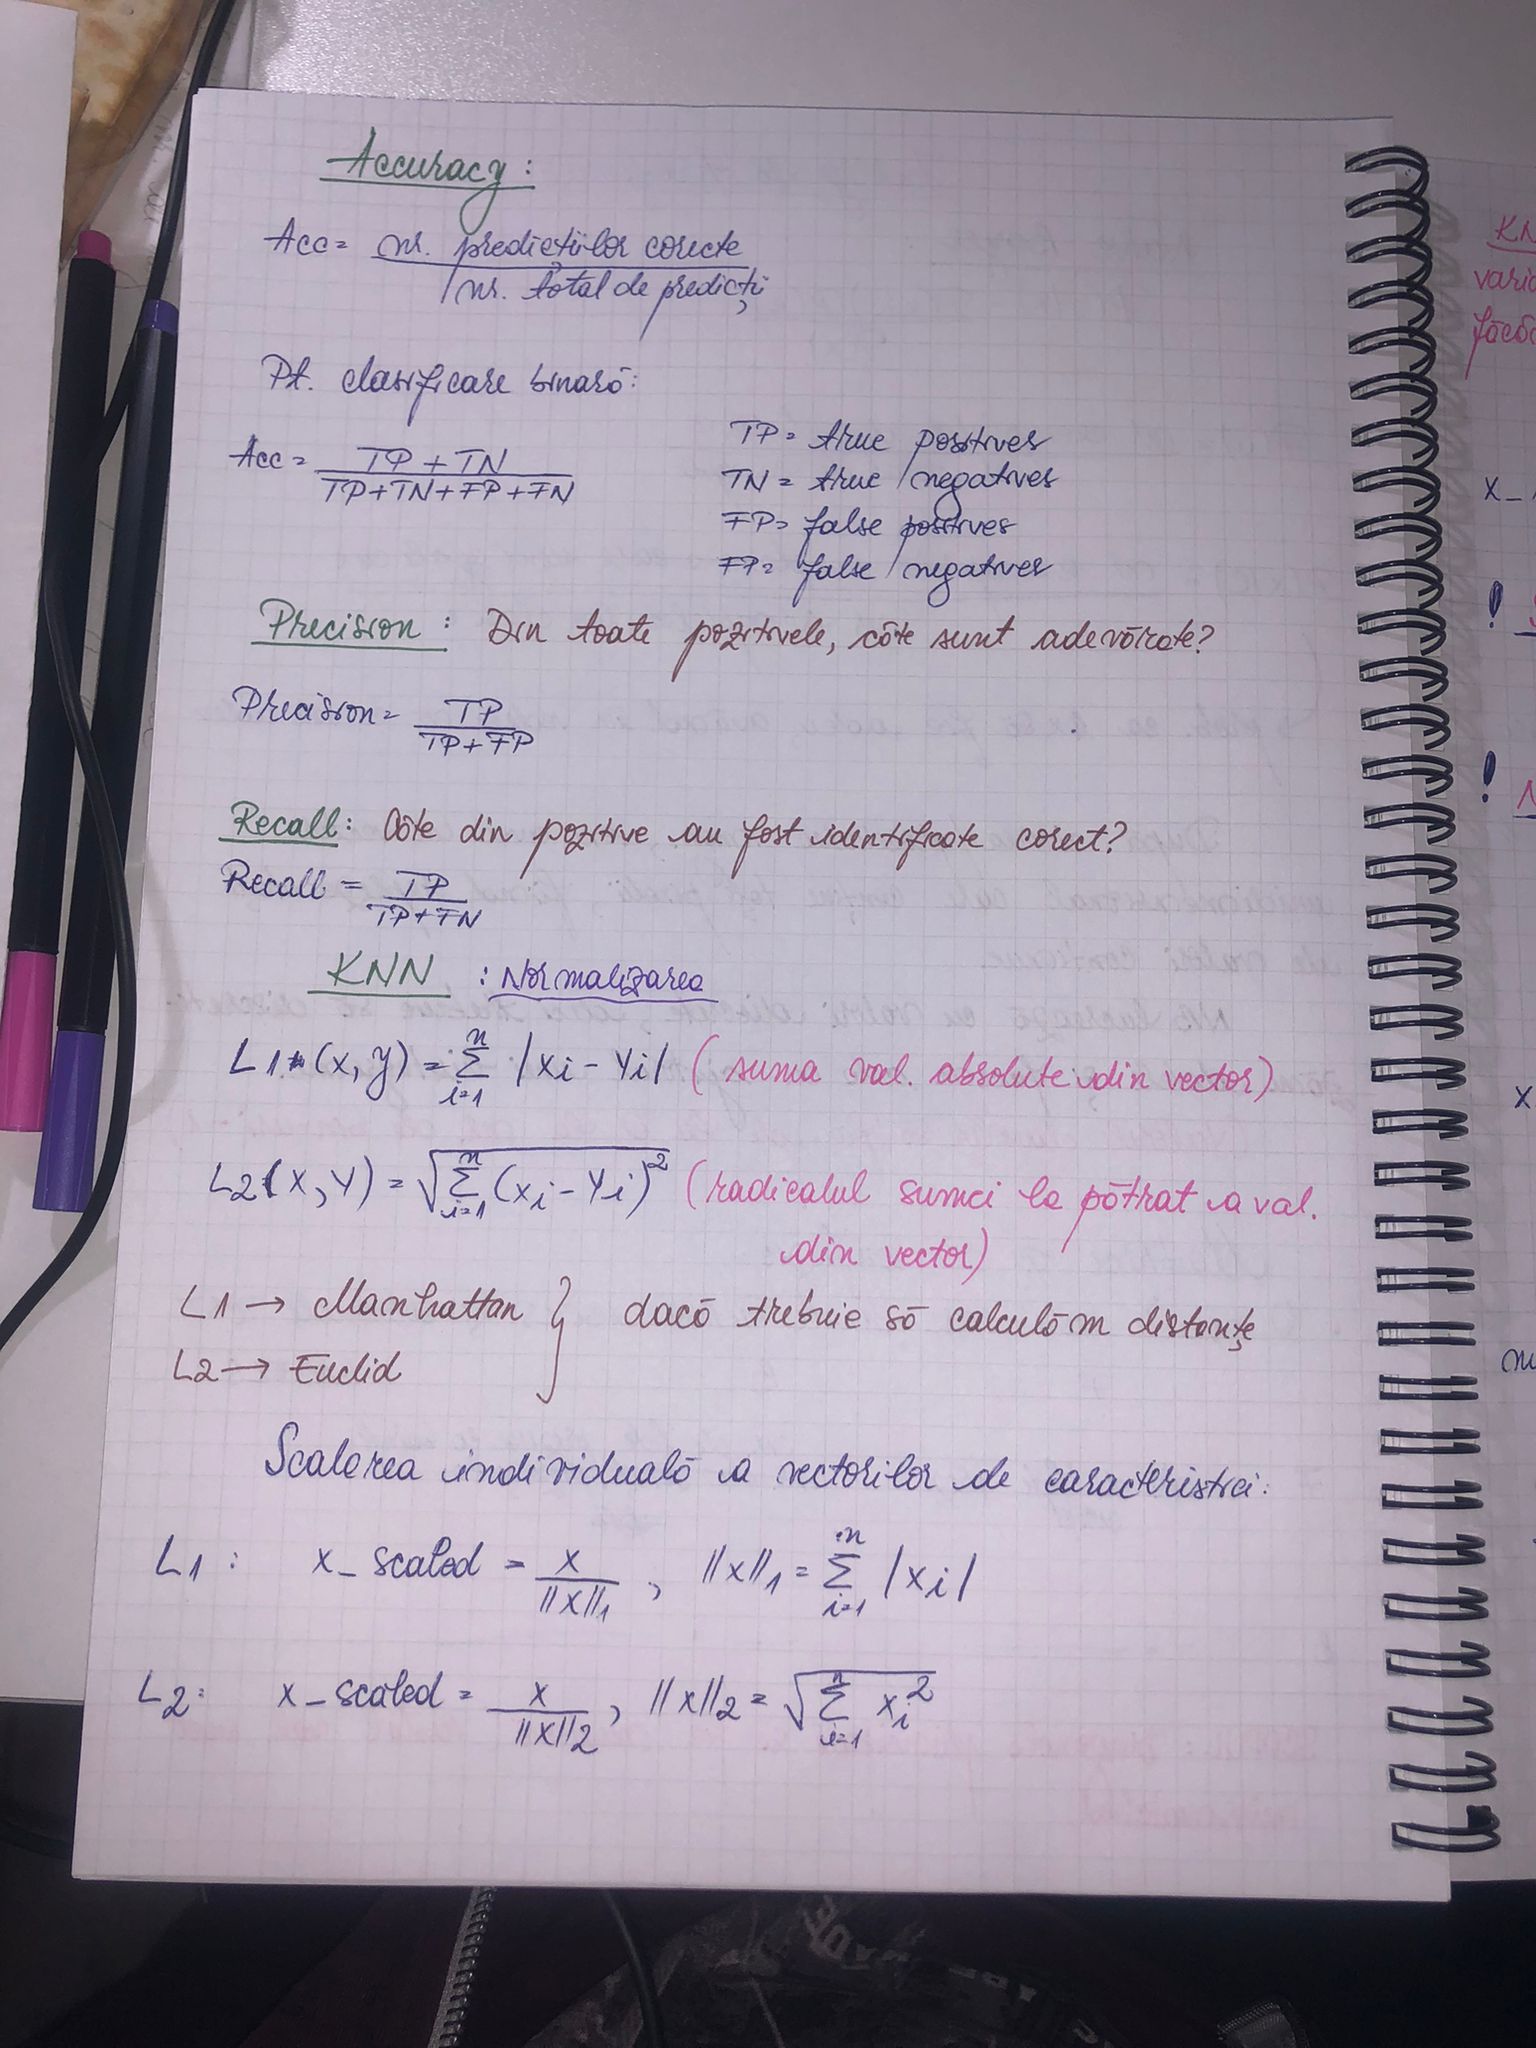 Accuracy:
Acc = nr. predicțiilor corecte
nr. total de predicții
Pt. clasificare binară:
Acc = TP + TN
TP+TN+FP+FN
TP = true positives
TN = true negatives
FP = false positives
FP = false negatives
Precision: Din toate pozitivele, câte sunt adevărate?
Precision = TP
TP+FP
Recall: Câte din pozitive au fost identificate corect?
Recall = TP
TP+FN
KNN : Normalizarea
L1 (x, y) = n∑i=1 |xi - yi| (suma val. absolute din vector)
L2 (x, y) = √n∑i=1 (xi - yi)² (radicalul sumei la pătrat a val.
din vector)
L1 → Manhattan } dacă trebuie să calculăm distanțe
L2 → Euclid
Scalarea individuală a vectorilor de caracteristici:
L1: x_scaled = x/||x||1 , ||x||1 = n∑i=1 |xi|
L2: x_scaled = x/||x||2 , ||x||2 = √n∑i=1 xi²
KN
x_
!
!
x